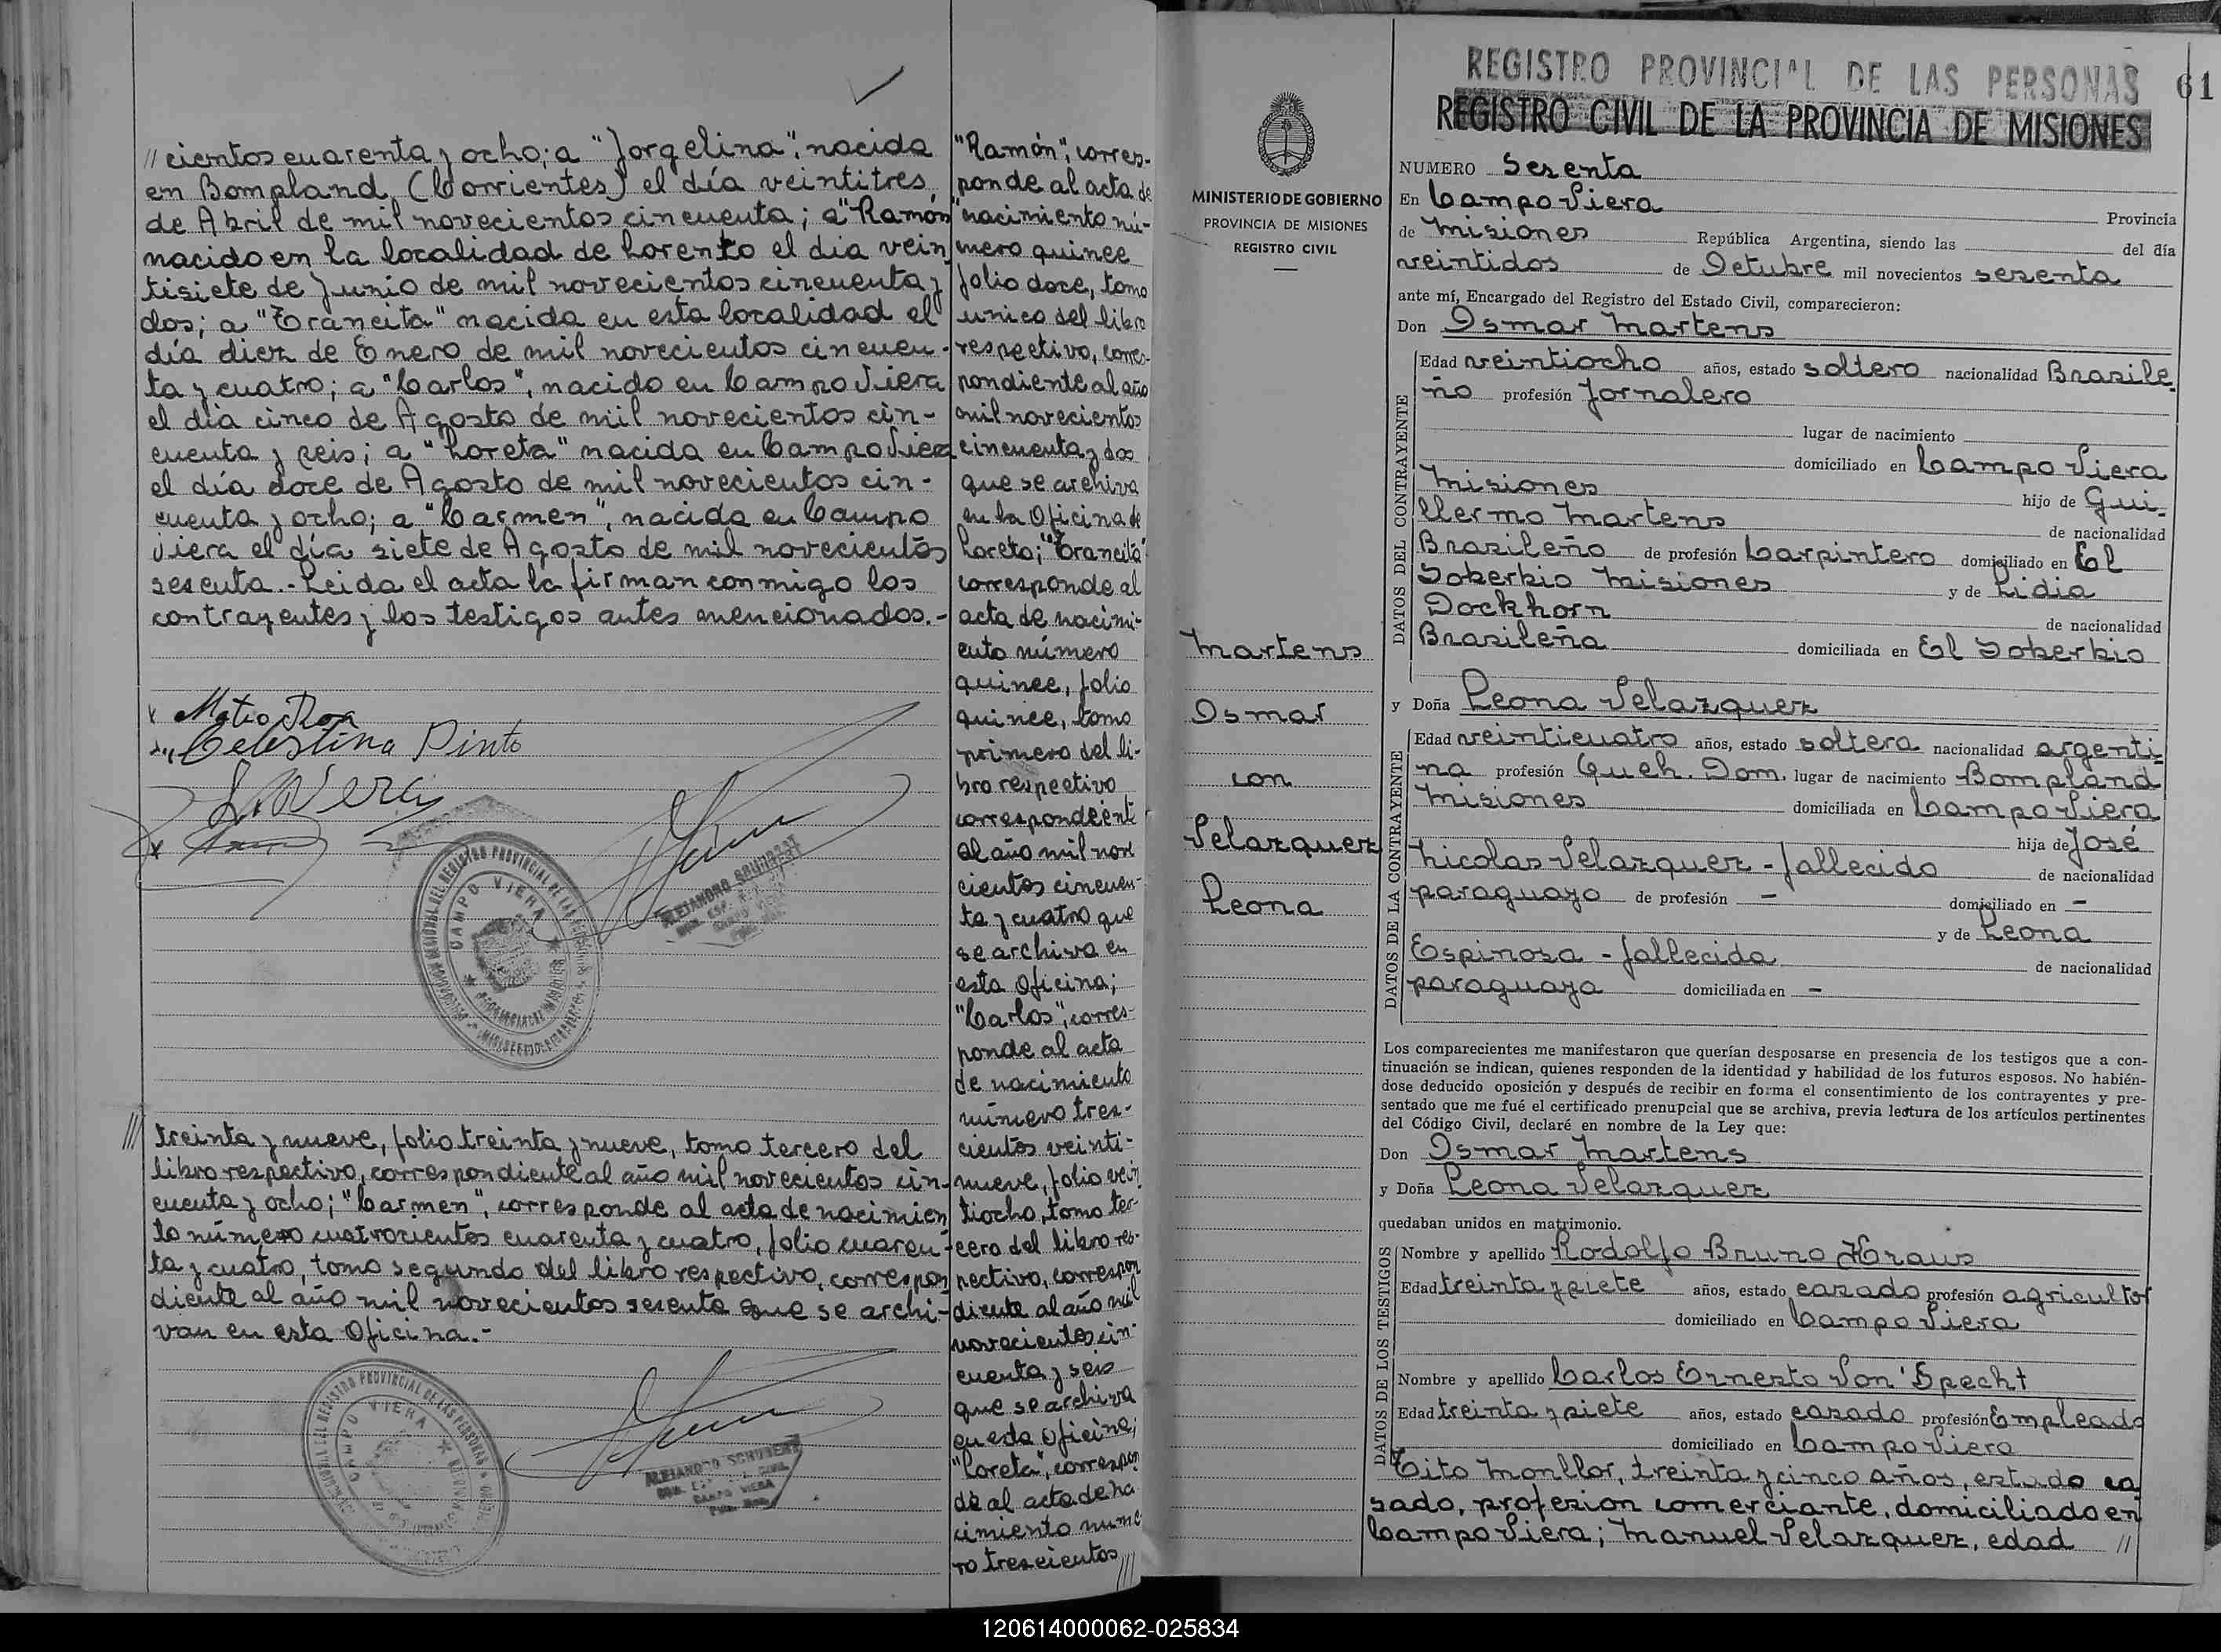 // cientos cuarenta y ocho; a "Jorgelina", nacida
en Bompland (Corrientes) el día veintitres
de Abril de mil novecientos cincuenta; a "Ramón"
nacido en la localidad de Loreto el día vein
tisiete de Junio de mil novecientos cincuenta y
dos; a "Francita" nacida en esta localidad el
día diez de Enero de mil novecientos cincuen-
ta y cuatro; a "Carlos", nacido en Campo Viera
el día cinco de Agosto de mil novecientos cin-
cuenta y seis; a "Loreta" nacida en Campo Viera
el día doce de Agosto de mil novecientos cin-
cuenta y ocho; a "Carmen", nacida en Campo
Viera el día siete de Agosto de mil novecientos
sesenta.- Leida el acta la firman conmigo los
contrayentes y los testigos antes mencionados.-
Mateo Roa
Celestina Pinto
CAMPO VIERA
/// treinta y nueve, folio treinta y nueve, tomo tercero del
libro respectivo, correspondiente al año mil novecientos cin-
cuenta y ocho; "Carmen", corresponde al acta de nacimien
to número cuatrocientos cuarenta y cuatro, folio cuaren-
ta y cuatro, tomo segundo del libro respectivo, correspon
diente al año mil novecientos sesenta que se archi-
van en esta Oficina.-
CAMPO VIERA
ALEJANDRO SCHUBERT
CAMPO VIERA
"Ramón", corres-
ponde al acta de
nacimiento nú-
mero quince
folio doce, tomo
unico del libro
respectivo, corres-
pondiente al año
mil novecientos
cincuenta y dos
que se archiva
en la Oficina de
Loreto; "Francita"
corresponde al
acta de nacimi-
ento número
quince, folio
quince, tomo
primero del li-
bro respectivo
correspondient
al año mil nove
cientos cincuen-
ta y cuatro que
se archiva en
esta Oficina;
"Carlos", corres-
ponde al acta
de nacimiento
número tres-
cientos veinti-
nueve, folio vein
tiocho, tomo ter-
cero del libro res-
pectivo, correspon
diente al año mil
novecientos cin-
cuenta y seis
que se archiva
en esta Oficina;
"Loreta", correspon
de al acta de na
cimiento nume
ro trescientos ///
MINISTERIO DE GOBIERNO
PROVINCIA DE MISIONES
REGISTRO CIVIL
Martens
Osmar
con
Velazquez
Leona
REGISTRO PROVINCIAL DE LAS PERSONAS
61
REGISTRO CIVIL DE LA PROVINCIA DE MISIONES
NUMERO Sesenta
En Campo Viera Provincia
de Misiones República Argentina, siendo las del día
veintidos de Octubre mil novecientos sesenta
ante mí, Encargado del Registro del Estado Civil, comparecieron:
Don Osmar Martens
DATOS DEL CONTRAYENTE
Edad veintiocho años, estado soltero nacionalidad Brasile-
ño profesión Jornalero
lugar de nacimiento
domiciliado en Campo Viera
Misiones hijo de Gui-
llermo Martens de nacionalidad
Brasileño de profesión Carpintero domiciliado en El
Soberbio Misiones y de Lidia
Dockhorn de nacionalidad
Brasileña domiciliada en El Soberbio
y Doña Leona Velazquez
DATOS DE LA CONTRAYENTE
Edad veinticuatro años, estado soltera nacionalidad argenti-
na profesión Queh. Dom. lugar de nacimiento Bompland
Misiones domiciliada en Campo Viera
hija de José
Nicolas Velazquez - fallecido de nacionalidad
paraguayo de profesión - domiciliado en -
y de Leona
Espinosa - fallecida de nacionalidad
paraguaya domiciliada en -
Los comparecientes me manifestaron que querían desposarse en presencia de los testigos que a con-
tinuación se indican, quienes responden de la identidad y habilidad de los futuros esposos. No habién-
dose deducido oposición y después de recibir en forma el consentimiento de los contrayentes y pre-
sentado que me fué el certificado prenupcial que se archiva, previa lectura de los artículos pertinentes
del Código Civil, declaré en nombre de la Ley que:
Don Osmar Martens
y Doña Leona Velazquez
quedaban unidos en matrimonio.
DATOS DE LOS TESTIGOS
Nombre y apellido Rodolfo Bruno Kraus
Edad treinta y siete años, estado casado profesión agricultor
domiciliado en Campo Viera
Nombre y apellido Carlos Ernesto Von Specht
Edad treinta y siete años, estado casado profesión Empleado
domiciliado en Campo Viera
Tito Monllor, treinta y cinco años, estado ca
sado, profesion comerciante, domiciliado en
Campo Viera; Manuel Velazquez, edad //
120614000062-025834